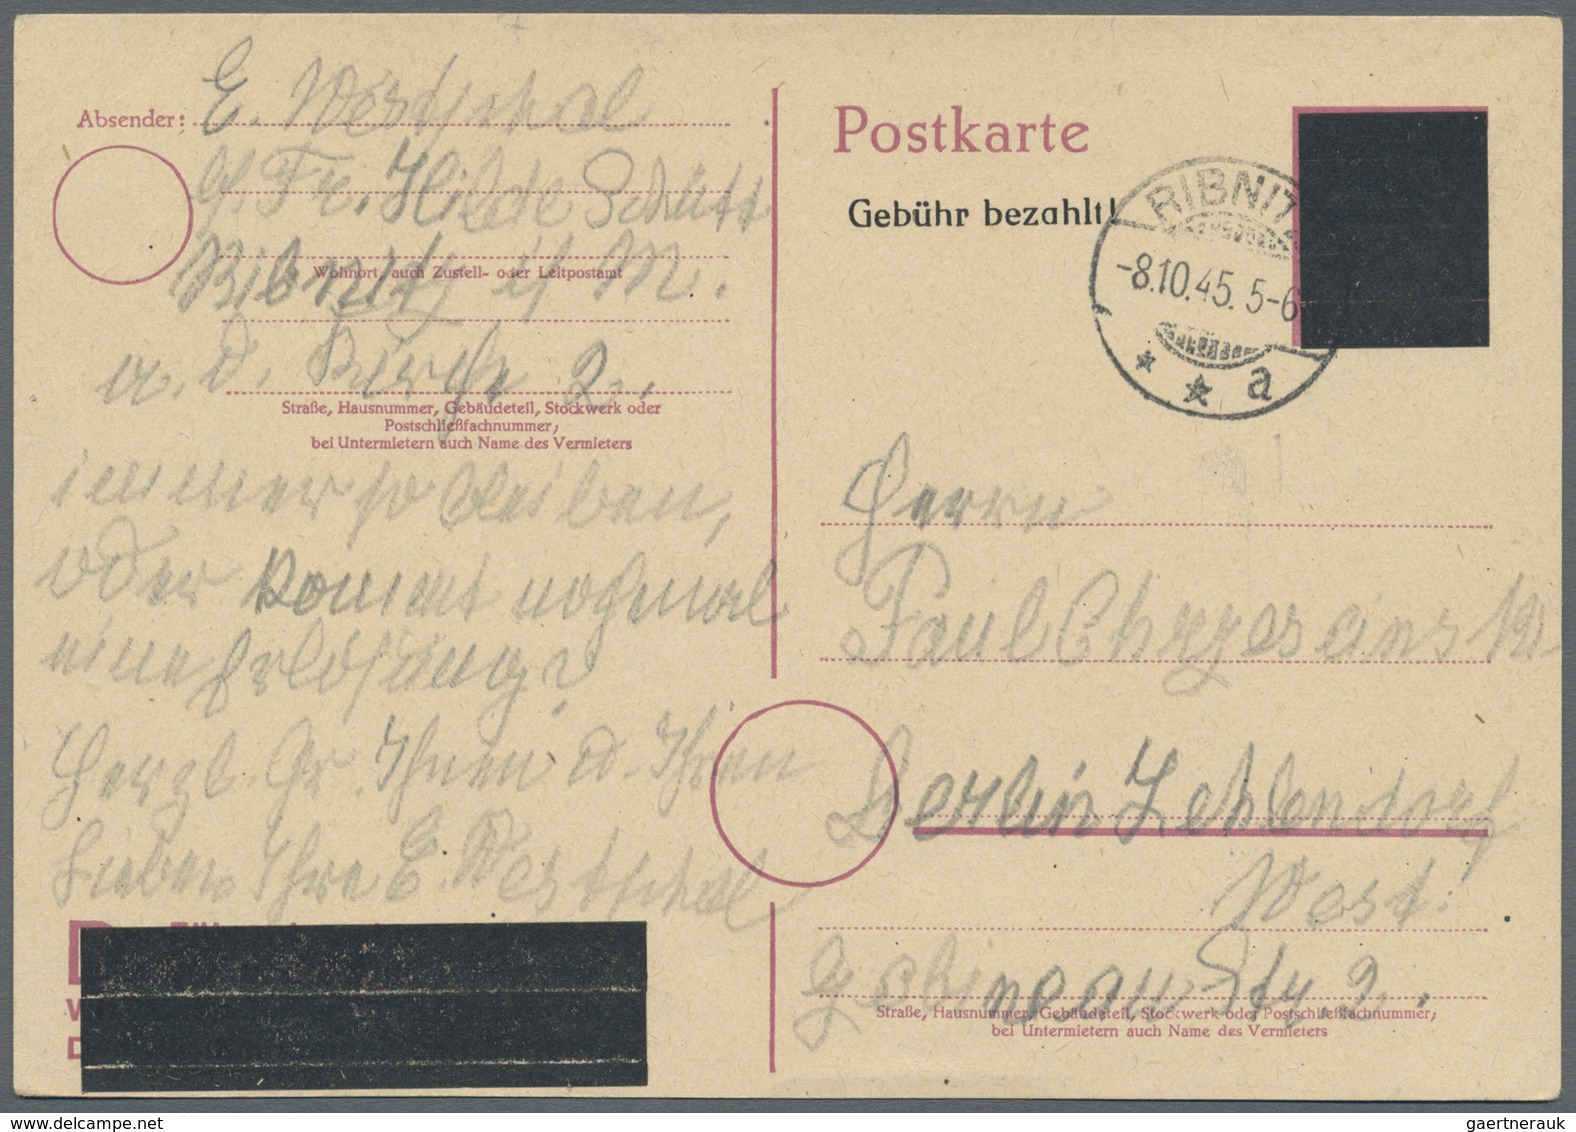 Absender: E. Westphal
b/ Fr. Hilde Schütt
Ribnitz i/ M.
Wohnort, auch Zustell- oder Leitpostamt
a. d. Kirche 2.
Straße, Hausnummer, Gebäudeteil, Stockwerk oder
Postschließfachnummer;
bei Untermietern auch Name des Vermieters
immer so bleiben,
oder kommt nochmal
eine Erlösung?
Herzl. Gr. Ihnen u. Ihren
Lieben Ihre E. Westphal
Postkarte
Gebühr bezahlt!
RIBNITZ
-8.10.45. 5-6
a
Herrn
Paul
Berlin Zehlendorf
West.
2.
Straße, Hausnummer, Gebäudeteil, Stockwerk oder Postschließfachnummer;
bei Untermietern auch Name des Vermieters
gaertnerauk